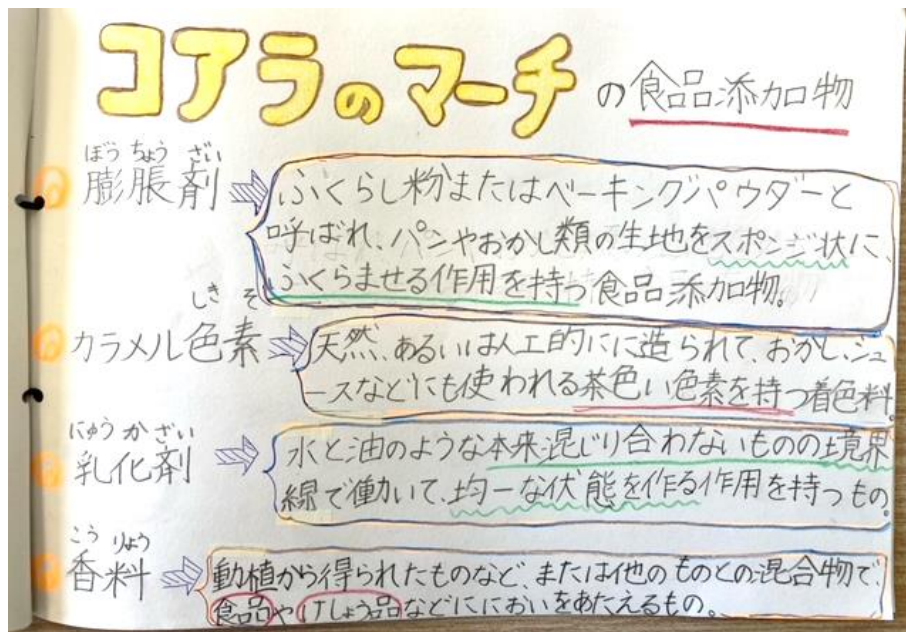 コアラのマーチの食品添加物
ぼうちょうざい
膨脹剤
ふくらし粉またはベーキングパウダーと
呼ばれ、パンやおかし類の生地をスポンジ状に、
ふくらませる作用を持つ食品添加物。
しきそ
カラメル色素
天然、あるいは人工的にに造られて、おかし、ジュ
ースなどにも使われる茶色い色素を持つ着色料。
にゅうかざい
乳化剤
水と油のような本来混じり合わないものの境界
線で働いて、均一な状態を作る作用を持つもの。
こうりょう
香料
動植から得られたものなど、または他のものとの混合物で、
食品やけしょう品などににおいをあたえるもの。